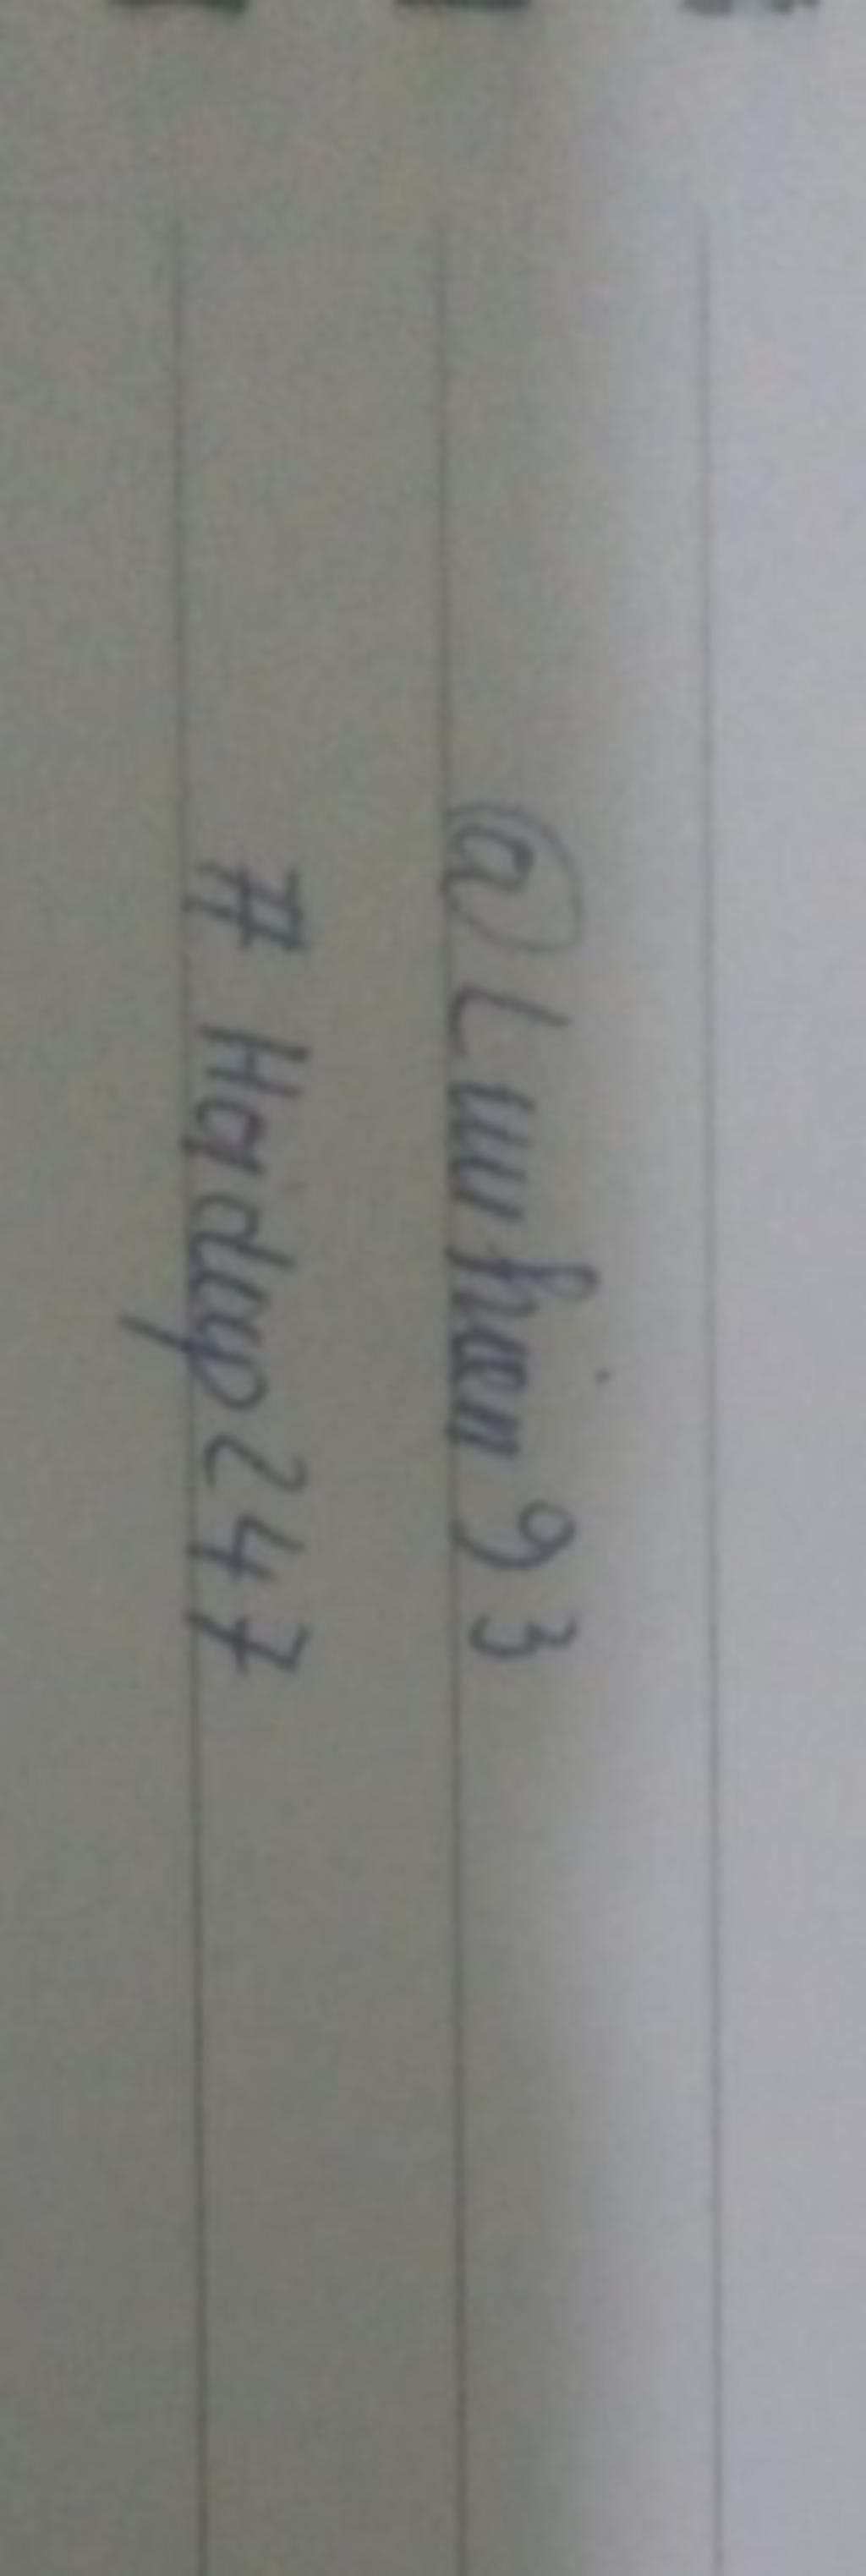 @Luuhan93
#Haday247